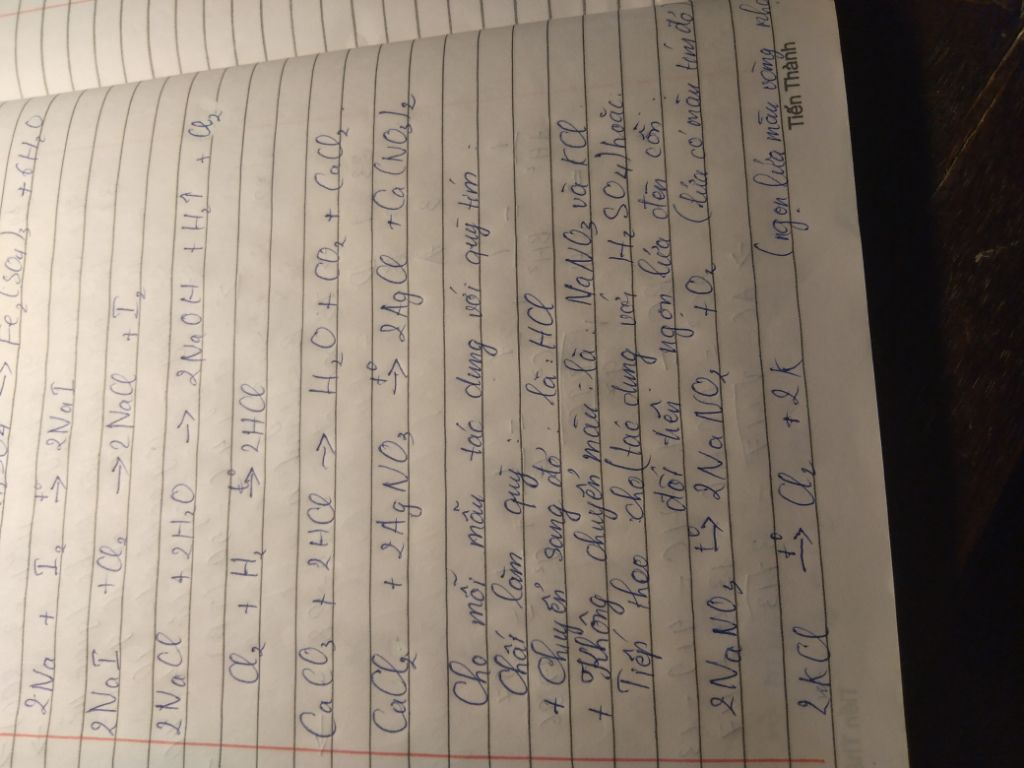 → Fe₂(SO₄)₃ + 6H₂O
2Na + I₂ t°→ 2NaI
2NaI + Cl₂ → 2NaCl + I₂
2NaCl + 2H₂O → 2NaOH + H₂↑ + Cl₂
Cl₂ + H₂ t°→ 2HCl
CaCO₃ + 2HCl → H₂O + CO₂ + CaCl₂
CaCl₂ + 2AgNO₃ t°→ 2AgCl + Ca(NO₃)₂
Cho mỗi mẫu tác dụng với quỳ tím.
Chất làm quỳ :
+ Chuyển sang đỏ là : HCl
+ Không chuyển màu : là : NaNO₃ và KCl
Tiếp theo cho (tác dụng với H₂SO₄) hoặc
đốt trên ngọn lửa đèn cồn.
2NaNO₃ t°→ 2NaNO₂ + O₂ (lửa có màu tím đỏ
2KCl t°→ Cl₂ + 2K (ngọn lửa màu vàng
Tiến Thành